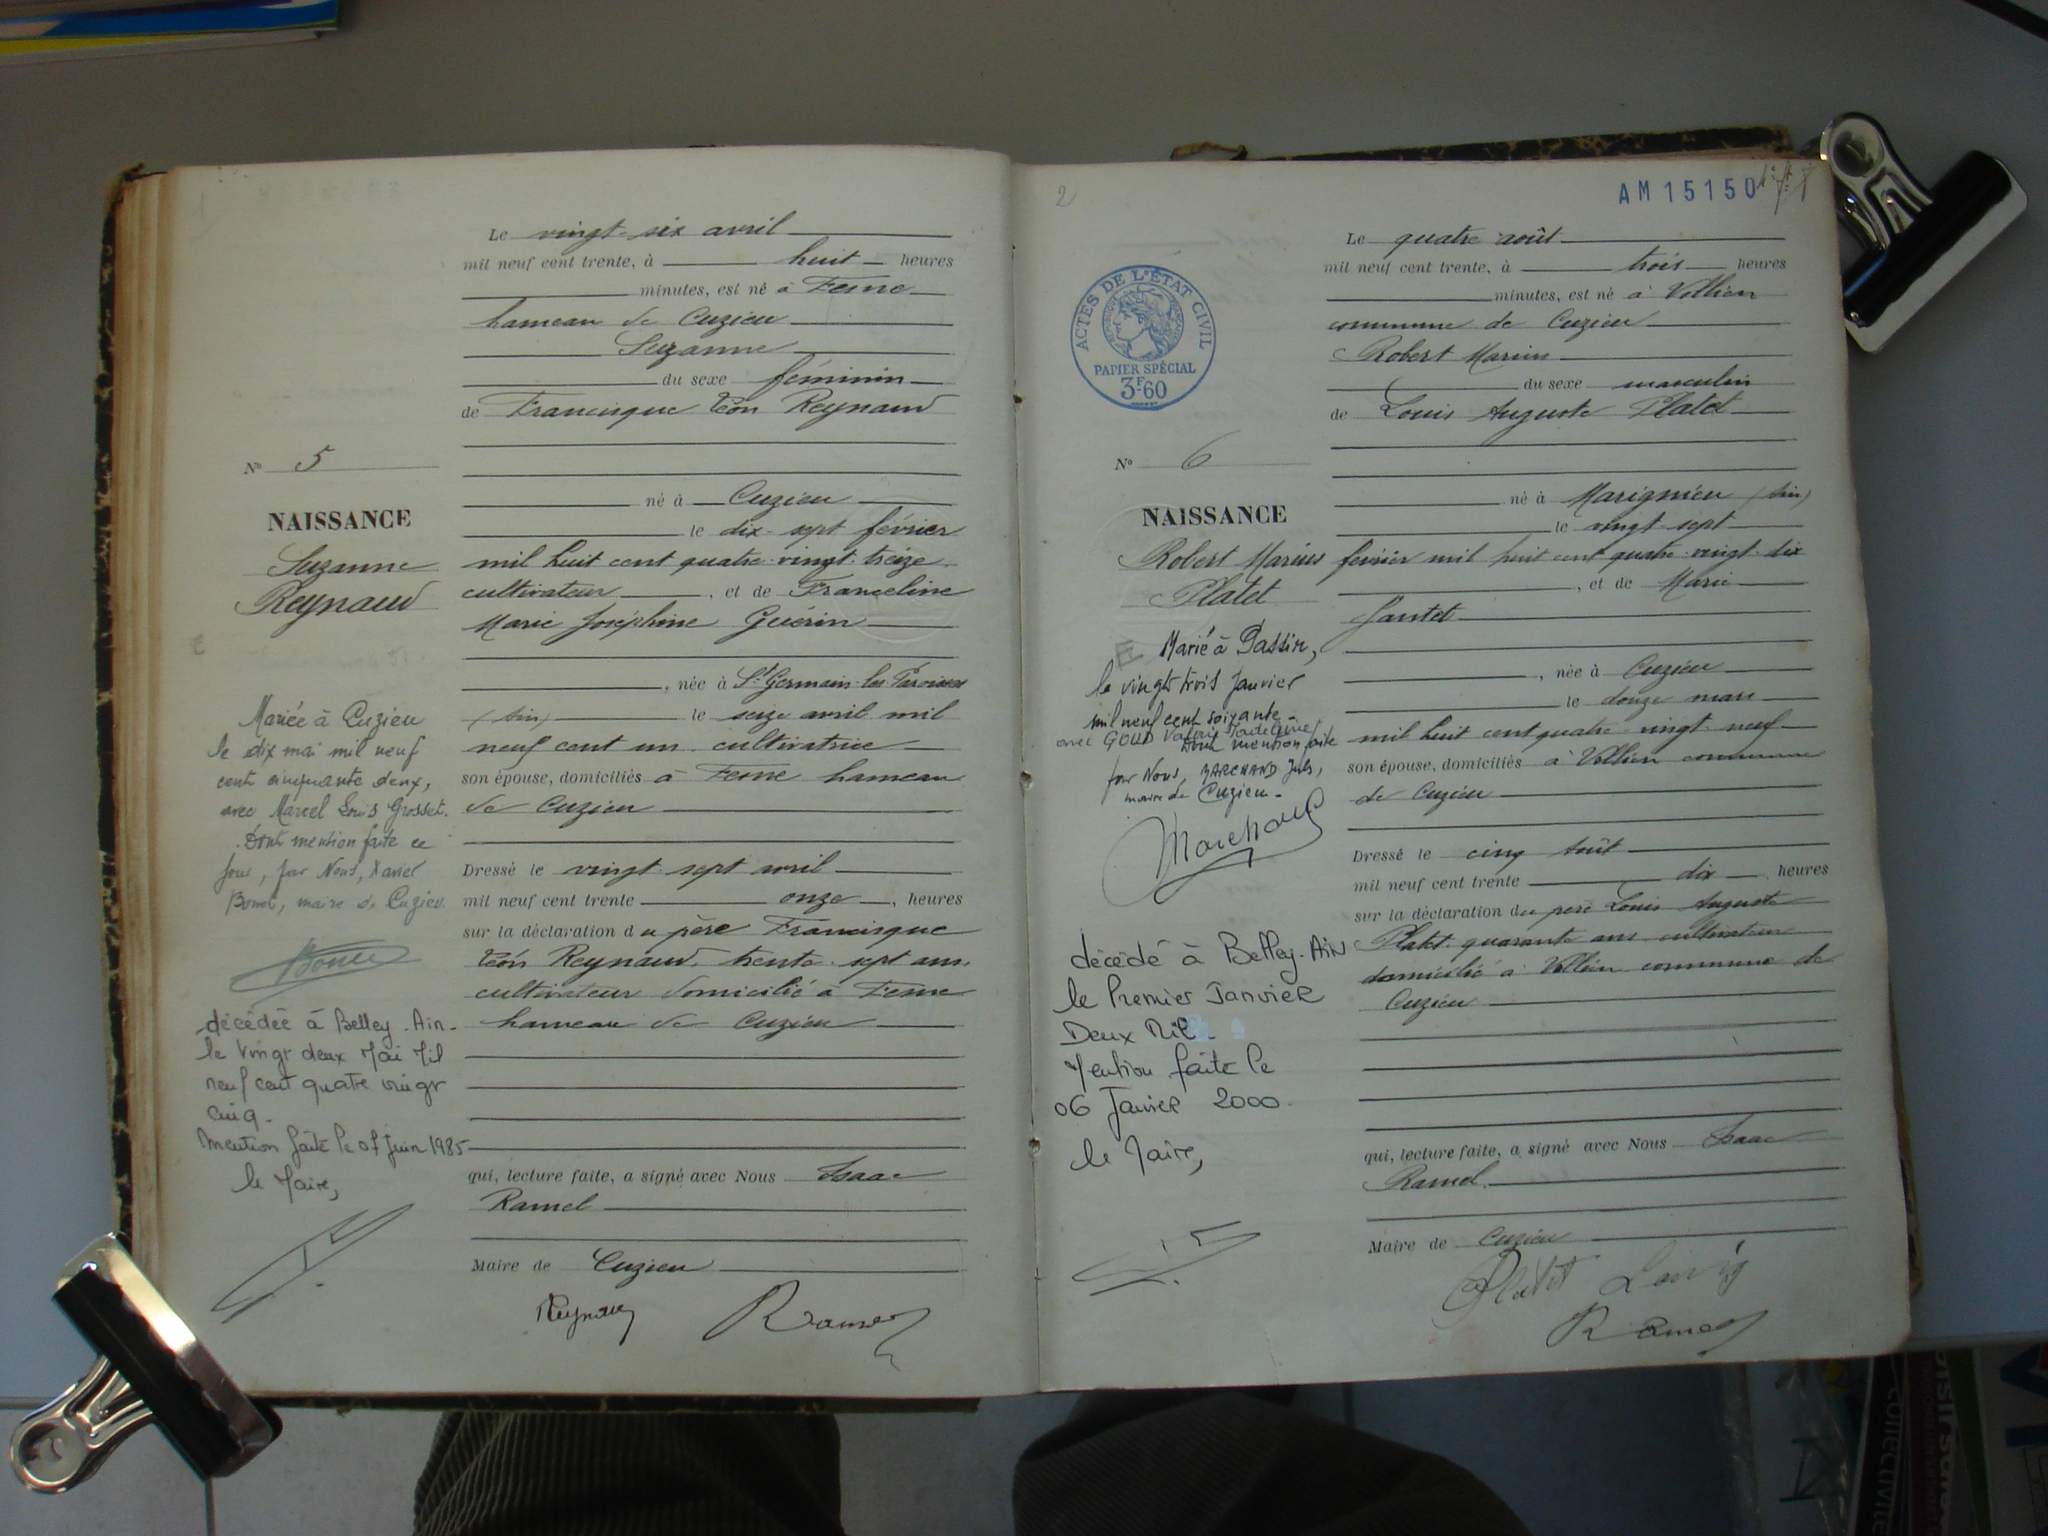 Le vingt-six avril
mil neuf cent trente, à huit heures
minutes, est né à
hameau de Cuzieu
Suzanne
du sexe féminin
de Francisque Léon Reynaud
N° 5
né à Cuzieu
NAISSANCE
le dix-sept février
Suzanne
mil huit cent quatre-vingt-treize
Reynaud
cultivateur, et de Franceline
Marie Joséphine Guérin
, née à St Germain-les-Paroisses
(Ain) le seize avril mil
neuf cent un. cultivatrice
son épouse, domiciliés à hameau
de Cuzieu
Mariée à Cuzieu
le dix mai mil neuf
cent cinquante deux,
avec Marcel Louis Grosset.
Dont mention faite ce
jour, par Nous, Xavier
maire de Cuzieu
Dressé le vingt-sept avril
mil neuf cent trente onze, heures
sur la déclaration du père Francisque
Léon Reynaud, trente-sept ans,
cultivateur domicilié à
hameau de Cuzieu
décédée à Belley-Ain-
le Vingt deux Mai Mil
neuf cent quatre vingt
cinq-
Mention faite le 07 Juin 1985
le Maire,
qui, lecture faite, a signé avec Nous Isaac
Ramel
Maire de Cuzieu
Reynaud
Ramel
2
AM 15150
Le quatre août
mil neuf cent trente, à trois heures
minutes, est né à Vollien
commune de Cuzieu
Robert Marius
du sexe masculin
de Louis Auguste Platet
ACTES DE L'ÉTAT CIVIL
PAPIER SPÉCIAL
3F60
N° 6
né à Marignieu (Ain)
NAISSANCE
le vingt-sept
Robert Marius
février mil huit cent quatre-vingt-dix
Platet
, et de Marie
Jantet
, née à Cuzieu
le douze mars
mil huit cent quatre-vingt-neuf
son épouse, domiciliés à Vollien commune
de Cuzieu
Marié à Passin,
le vingt trois Janvier
mil neuf cent soixante-
avec GOUD
Dont mention faite
par Nous, MARCHAND
maire de Cuzieu-
Marchand
Dressé le cinq août
mil neuf cent trente dix, heures
sur la déclaration du père Louis Auguste
Platet, quarante ans cultivateur
domicilié à Vollien commune de
Cuzieu
décédé à Belley-Ain
le Premier Janvier
Deux Mil-
Mention faite le
06 Janvier 2000.
le Maire,
qui, lecture faite, a signé avec Nous Isaac
Ramel
Maire de Cuzieu
Platet Louis
Ramel